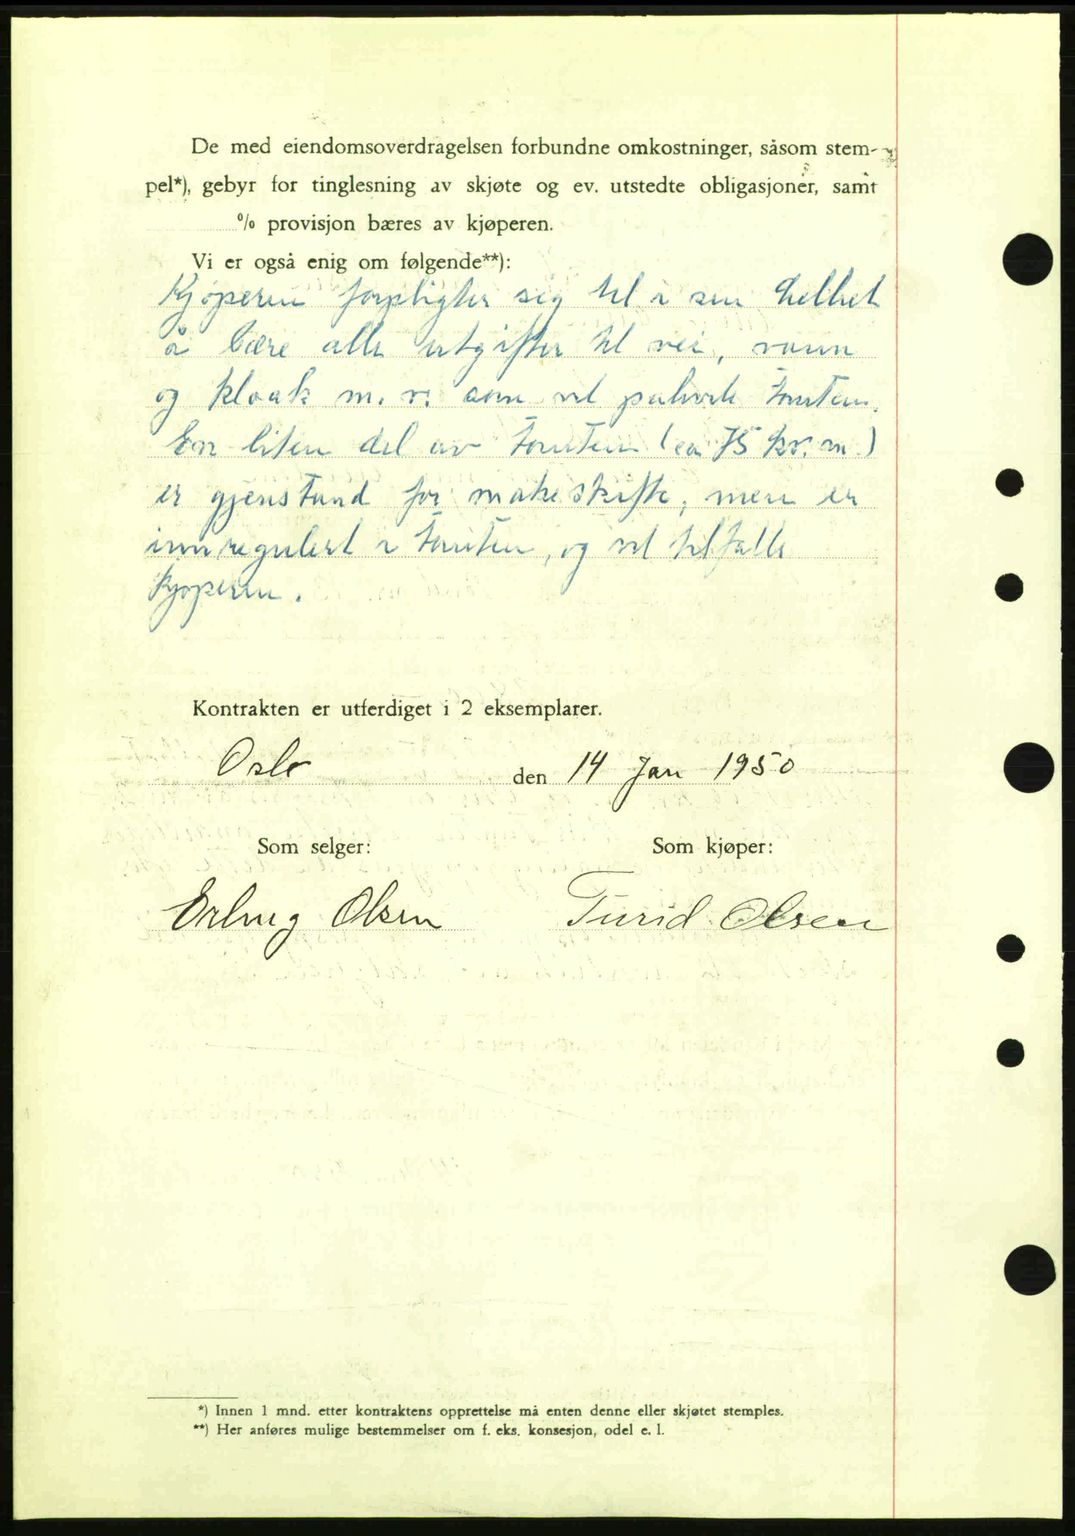 De med eiendomsoverdragelsen forbundne omkostninger, såsom stem-
pel*), gebyr for tinglesning av skjøte og ev. utstedte obligasjoner, samt
% provisjon bæres av kjøperen.
Vi er også enig om følgende**):
Kjøperen forpligter sig til i sin helhet
å bære alle utgifter til vei, vann
og kloak m. v. som vil påhvile tomten.
En liten del av tomten (ca 75 kv. m.)
er gjenstand for makeskifte, men er
innregulert i tomten, og vil tilfalle
kjøperen.
Kontrakten er utferdiget i 2 eksemplarer.
Oslo den 14 Jan 1950
Som selger: Som kjøper:
Erling Olsen Turid Olsen
*) Innen 1 mnd. etter kontraktens opprettelse må enten denne eller skjøtet stemples.
**) Her anføres mulige bestemmelser om f. eks. konsesjon, odel e. l.